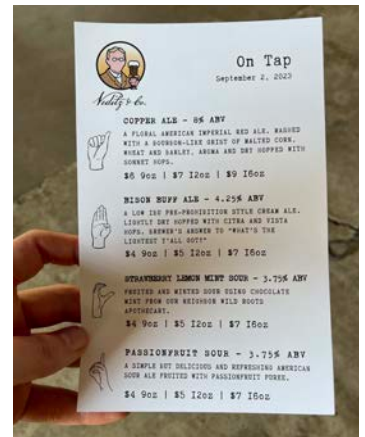 On Tap
September 2, 2023
COPPER ALE - 8% ABV
A FLORAL AMERICAN IMPERIAL RED ALE. MASHED
WITH A BOURBON-LIKE GRIST OF MALTED CORN,
WHEAT AND BARLEY, AROMA AND DRY HOPPED WITH
SONNET HOPS.
$6 9oz | $7 12oz | $9 16oz
BISON BUFF ALE - 4.25% ABV
A LOW IBU PRE-PROHIBITION STYLE CREAM ALE.
LIGHTLY DRY HOPPED WITH CITRA AND VISTA
HOPS. BREWER'S ANSWER TO "WHAT'S THE
LIGHTEST Y'ALL GOT?"
$4 9oz | $5 12oz | $7 16oz
STRAWBERRY LEMON MINT SOUR - 3.75% ABV
FRUITED AND MINTED SOUR USING CHOCOLATE
MINT FROM OUR NEIGHBOR WILD ROOTS
APOTHECARY.
$4 9oz | $5 12oz | $7 16oz
PASSIONFRUIT SOUR - 3.75% ABV
A SIMPLE BUT DELICIOUS AND REFRESHING AMERICAN
SOUR ALE FRUITED WITH PASSIONFRUIT PUREE.
$4 9oz | $5 12oz | $7 16oz